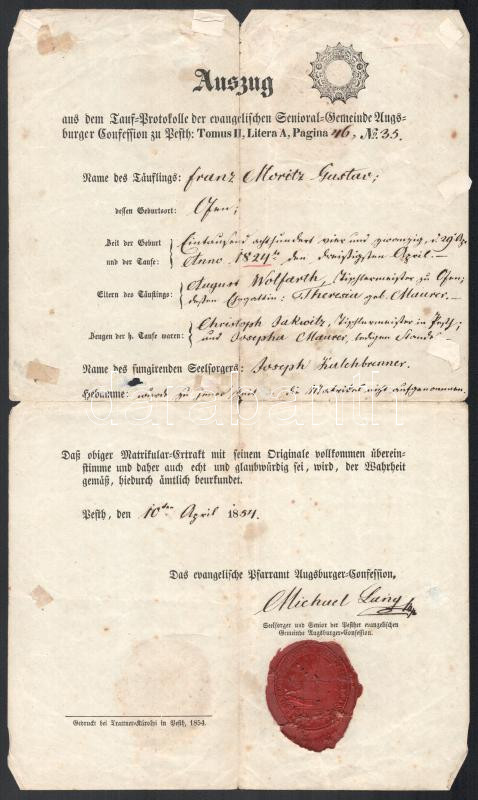 Auszug
aus dem Tauf-Protokolle der evangelischen Senioral-Gemeinde Augs-
burger Confession zu Pesth: Tomus II, Litera A, Pagina 46, No. 35.
Name des Täuflings: Franz Moritz Gustav;
dessen Geburtsort: Ofen;
Zeit der Geburt Eintausend achthundert vier und zwanzig, d. 29.
und der Taufe: Anno 1824 den dreißigsten April.—
August Wolfarth, Tischlermeister zu Ofen;
Eltern des Täuflings: dessen Ehegattin: Theresia geb. Maurer.—
Christoph Jakwitz, Tischlermeister in Pesth;
Zeugen der h. Taufe waren: und Josepha Maurer, ledigen Standes
Name des fungirenden Seelsorgers: Joseph Kalchbrenner.
Hebamme: wurde zu jener Zeit in die Matrikel nicht aufgenommen.
Daß obiger Matrikular-Extrakt mit seinem Originale vollkommen überein-
stimme und daher auch echt und glaubwürdig sei, wird, der Wahrheit
gemäß, hiedurch ämtlich beurkundet.
Pesth, den 10ten April 1854.
Das evangelische Pfarramt Augsburger-Confession.
Michael Lang
Seelsorger und Senior der Pesther evangelischen
Gemeinde Augsburger-Confession.
Gedruckt bei Trattner-Károlyi in Pesth, 1854.